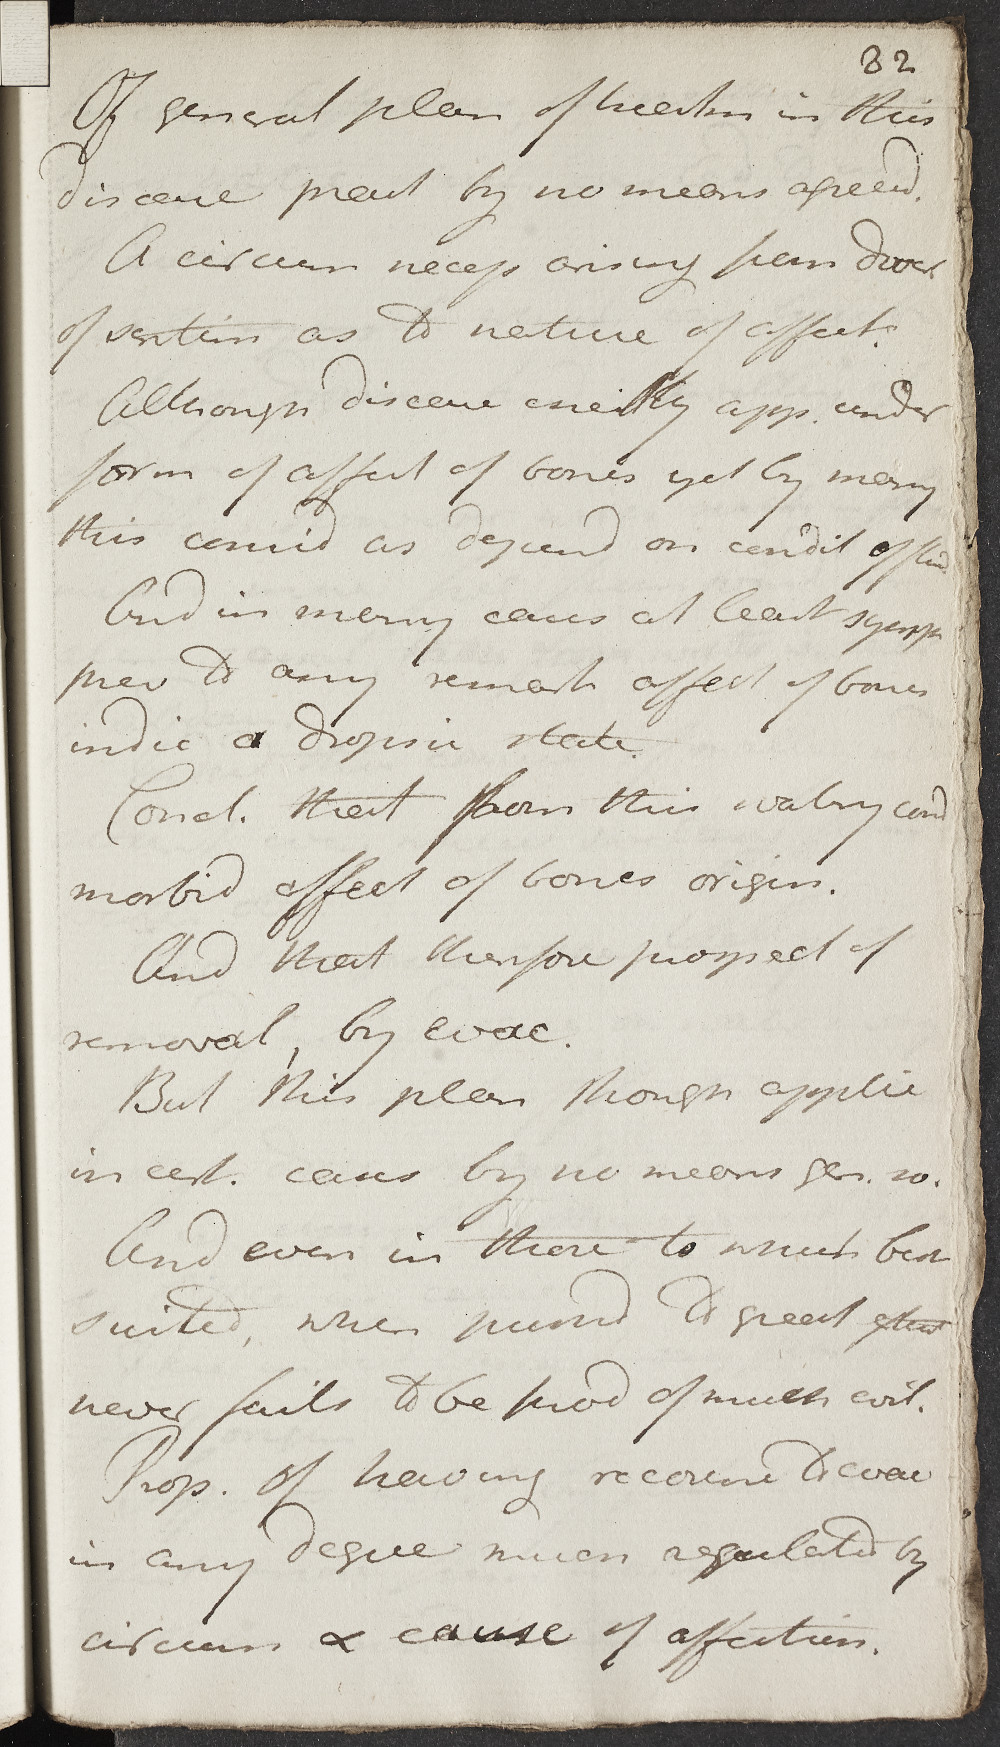 82
Of general plan of treatm in this
disease pract by no means agreed.
A circum necess arising from diver
of sentim as to nature of affect.
Although disease app. under
form of affect of bones yet by many
this consid as depend on condit of fluid
And in many cases at least symp
prev to any remark affect of bones
indic a dropsic state.
Concl. that from this watry cond
morbid affect of bones origin.
And that therefore prospect of
removal, by evac.
But this plan though applic
in cert. cases by no means gen. so.
And even in those to which best
suited, when pursued to great extent
never fails to be prod of much evil.
Prop. of having recourse to evac
in any degree much regulated by
circum & cause of affection.